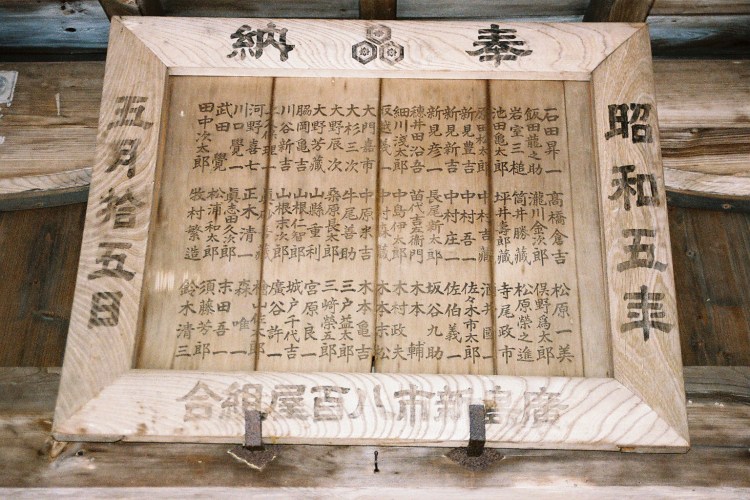 奉納
昭和五年
石田昇一 高橋倉吉 松原一美
飯田龍之助 瀧川金次郎 俣野爲太郎
岩室三槌 筒井勝藏 松原榮之進
池田亀太郎 坪井壽郎藏 寺尾政市
原田松太郎 中村吉藏 酒井國一
新見豊吉 中村吾一 佐々木市太郎
新見新吉 中村庄二 佐伯義一
新見彦一 長尾新太郎 坂谷九助
穂井田沼吾 苗代吉左衛門 木本輔
細川浅太郎 中島伊太郎 木村政夫
義一 中村藏 木本末松
大門嘉市 中原忠吉 木本亀吉
大杉三次 牛尾善助 三戸益太郎
大野辰次 桑原長太郎 三崎榮五郎
大野芳藏 山縣重利 宮原良一
脇岡亀吉 山根仁智郎 城戸千代吉
川谷新吉 山根末次郎 廣谷許一
理一 藏 山佐一郎
河野喜七 正木清一 森唯一
川口覺一 眞志田久次郎 末田吾一
武田覺 松浦和太郎 須藤芳郎
田中次太郎 牧村繁造 鈴木清三
五月拾五日
新市八百屋組合